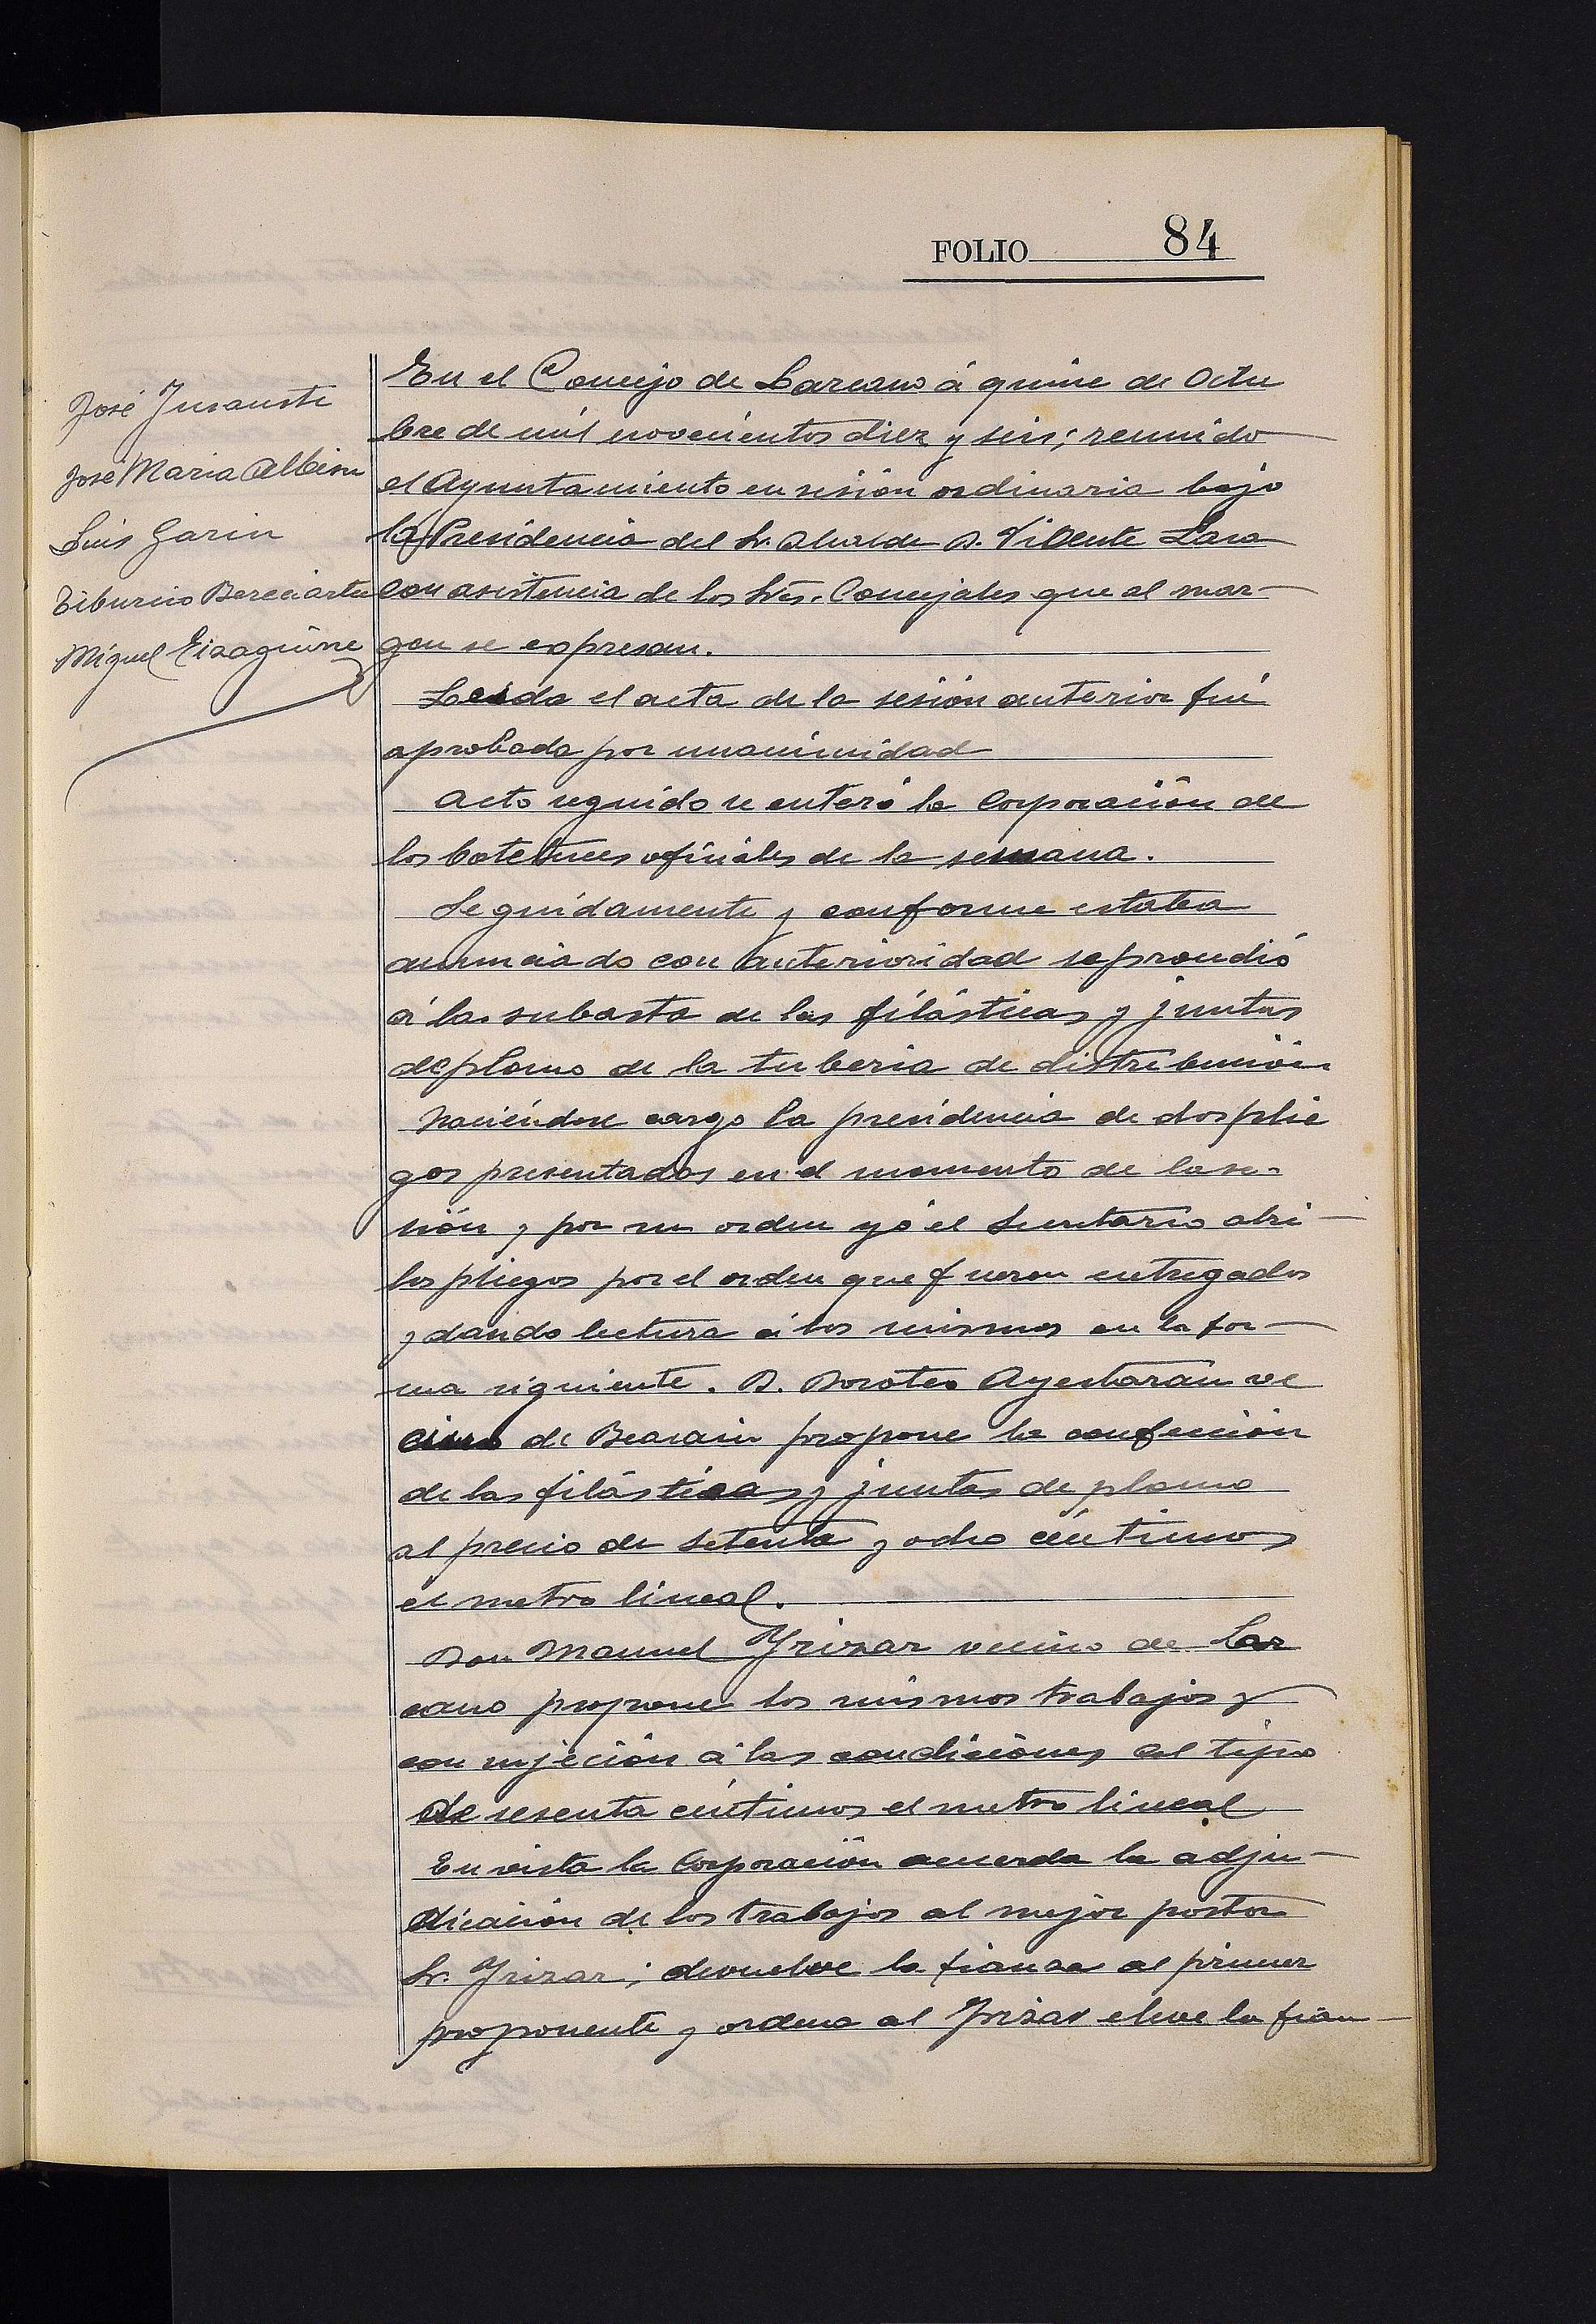 FOLIO 84
José Insausti
José Maria Albisu
Luis Garin
Tiburcio Bereciartu
Miguel Eizaguirre
En el Concejo de Lazcano á quince de Octu
bre de mil novecientos diez y seis; reunido
el Ayuntamiento en sesión ordinaria bajo
la Presidencia del Sr. Alcalde D. Vicente Lasa
con asistencia de los Sres. Concejales que al mar-
gen se expresan.
Leida el acta de la sesión anterior fué
aprobada por unanimidad
Acto seguido se enteró la Corporación de
los boletines oficiales de la semana.
Seguidamente y conforme estaba
anunciado con anterioridad se procedió
á la subasta de las filásticas y juntas
de plomo de la tuberia de distribución
haciéndose cargo la presidencia de dos plie
gos presentados en el momento de la se-
sión y por su orden yó el Secretario abrí -
los pliegos por el orden que fueron entregados
y dando lectura á los mismos en la for-
ma siguiente. D. Doroteo Ayestarán ve
cino de Beasain propone la confección
de las filásticas y juntas de plomo
al precio de setenta y ocho céntimos
el metro lineal.
Don Manuel Yrizar vecino de Laz
cano propone los mismos trabajos y
con sujeción á las condiciones al tipo
de sesenta céntimos el metro lineal
En vista la Corporación acuerda la adju-
dicación de los trabajos al mejor postor
Sr. Yrizar; devuelve la fianza al primer
proponente y ordena al Yrizar eleve la fian-